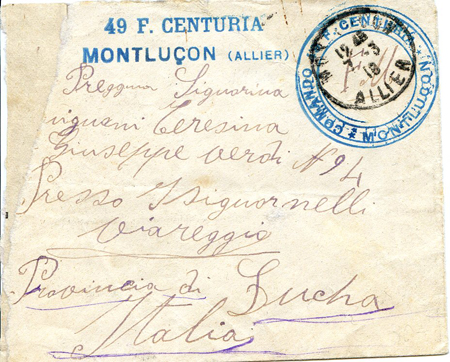 49 F. CENTURIA
MONTLUÇON (ALLIER)
COMANDO 49 F. CENTURIA
* MONTLUÇON *
ALLIER
18
Preggma Signorina
Teresina
Giuseppe Verdi N 94
Presso Signornelli
Viareggio
Provincia di Lucha
Italia